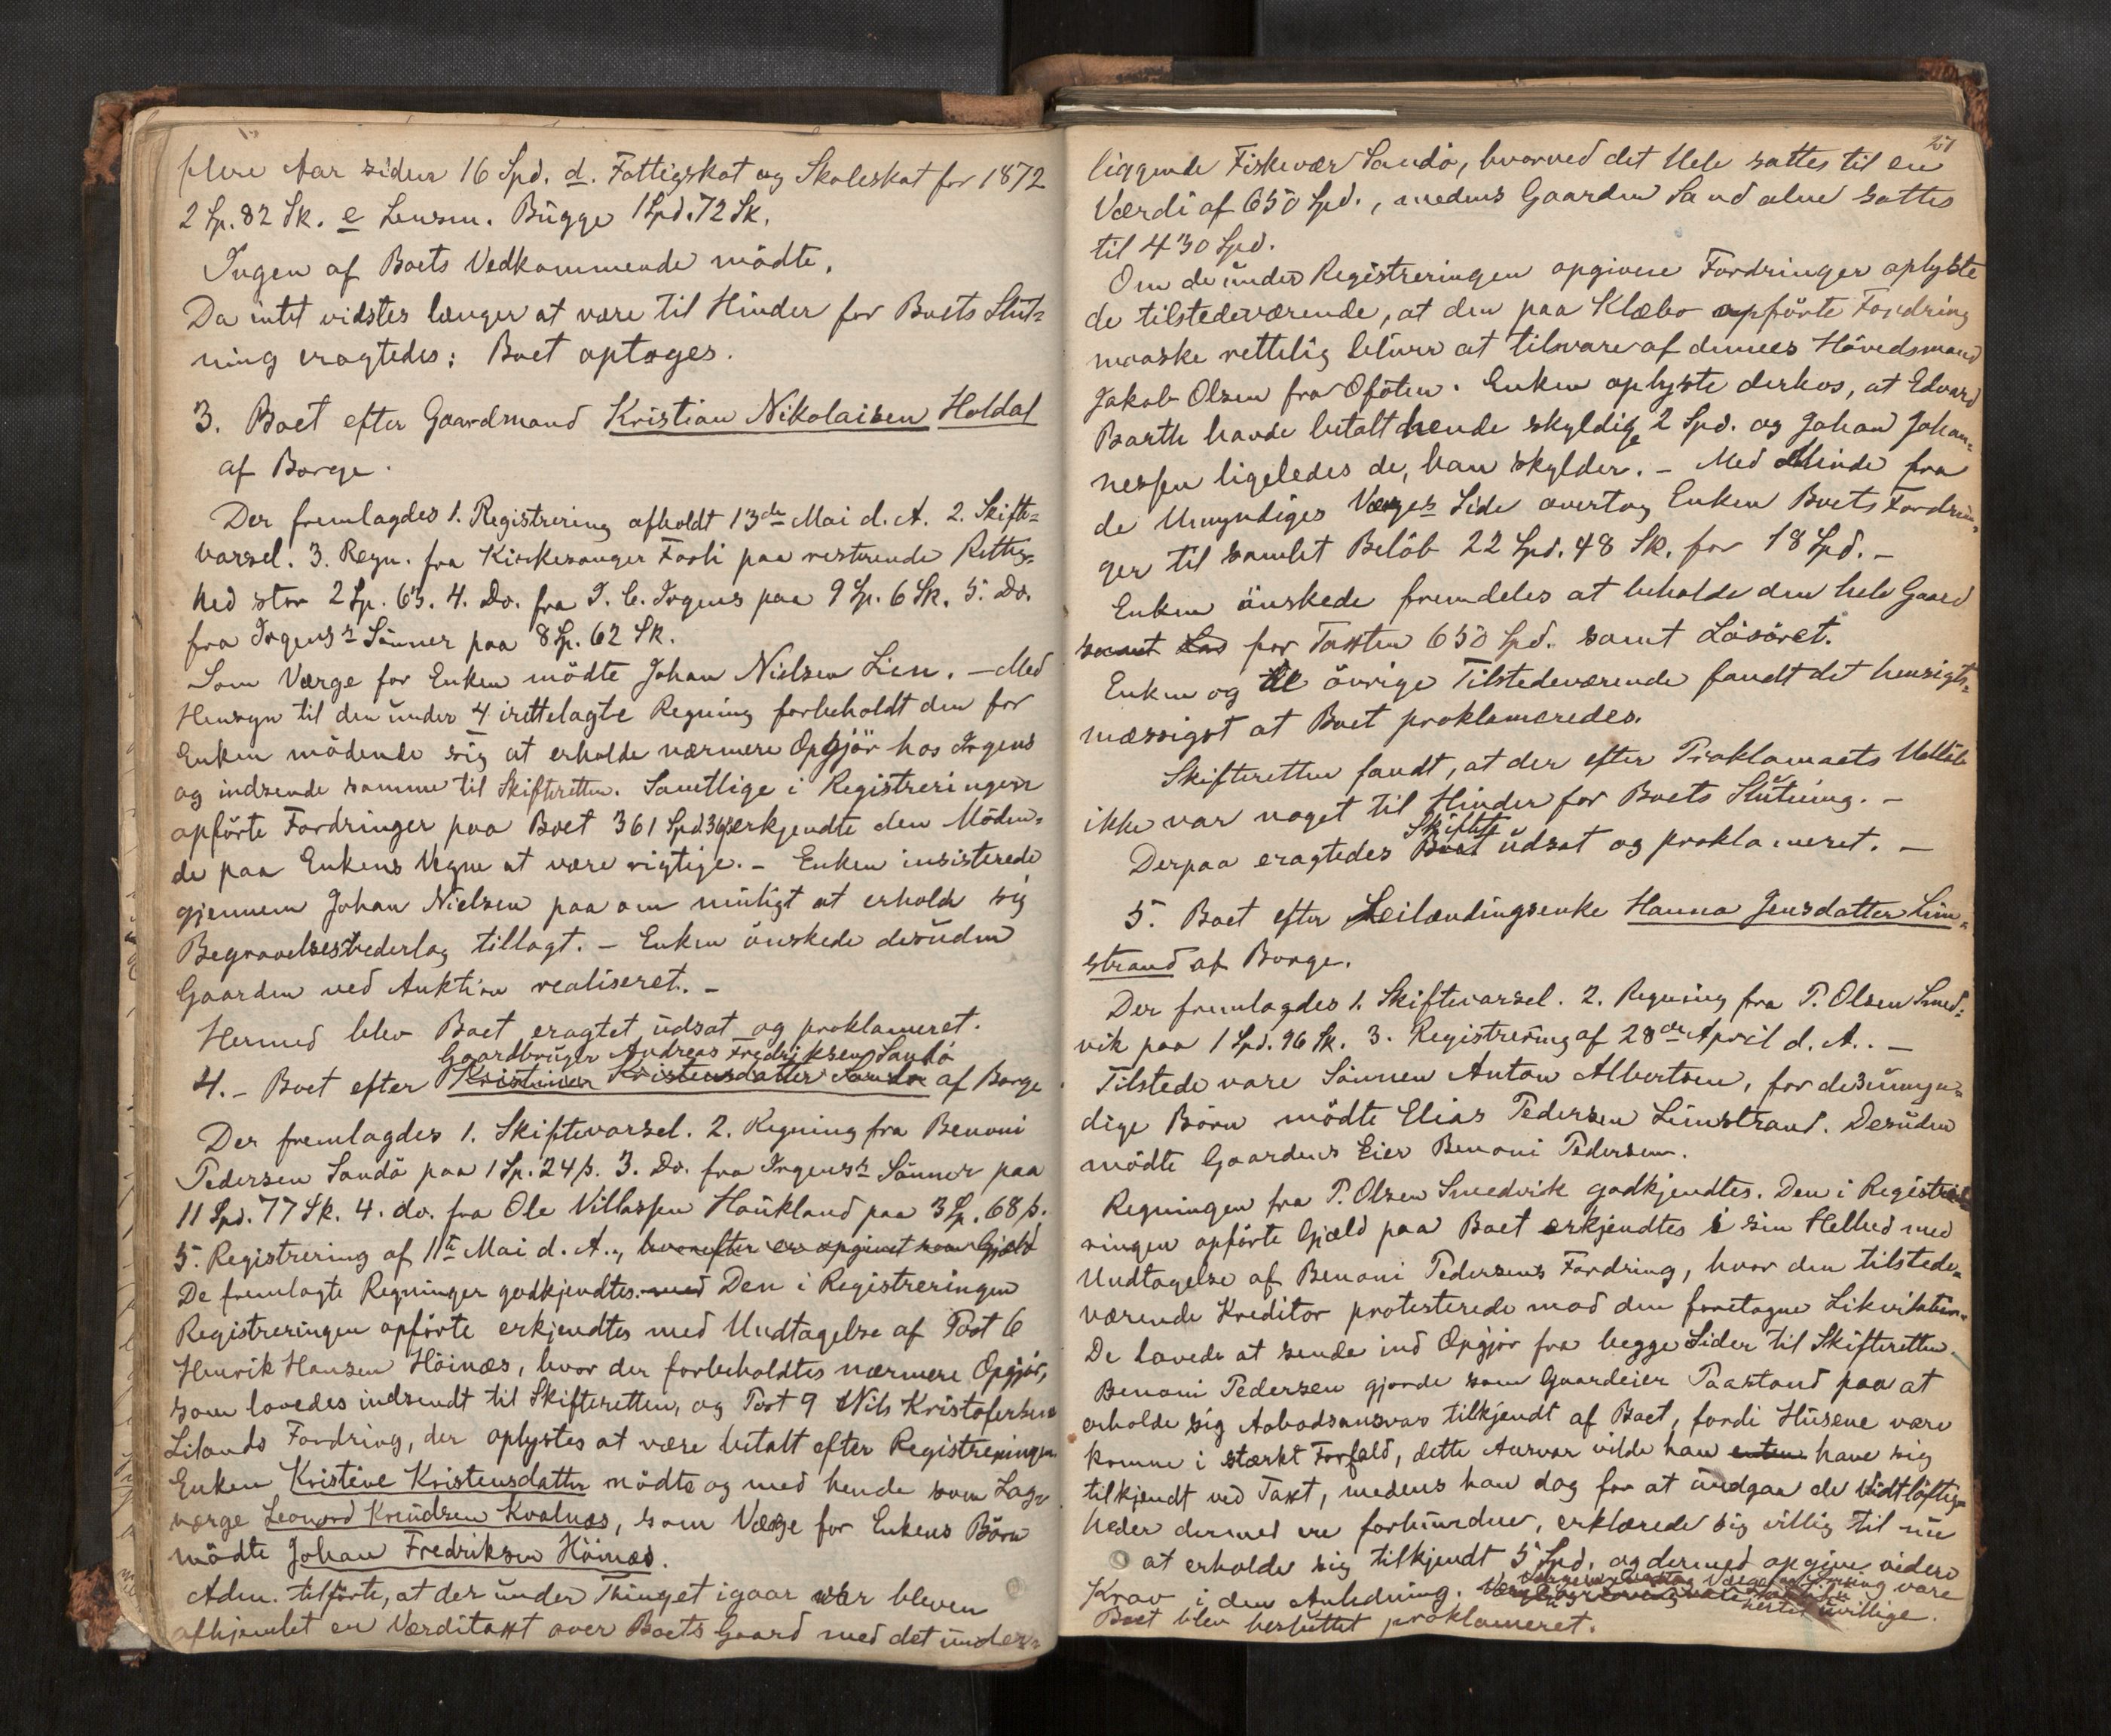 flere Aar siden 16 Spd. d. Fattigskat og Skoleskat for 1872
2 Sp. 82 Sk. e Lensm. Bügge 1 Spd. 72 Sk.
Ingen af Boets Vedkommende mödte.
Da intet vidstes længer at være til Hinder for Boets Slut=
ning eragtedes: Boet optages.
3. Boet efter Gaardmand Kristian Nikolaisen Holdal
af Borge.
Der fremlagdes 1. Registrering afholdt 13de Mai d. A. 2. Skifte=
varsel. 3. Regn. fra Kirkesanger Farli paa resterende Rettig=
hed stor 2 Sp. 63. 4. Do. fra J. C. Irgens paa 9 Sp. 6 Sk. 5. Do.
fra Irgens's Sönner paa 8 Sp. 62 Sk.
Som Værge for Enken mödte Johan Nielsen Lien. – Med
Hensyn til den ünder 4 irettelagte Regning forbeholdt den for
Enken mödende sig at erholde nærmere Opgjör hos Irgens
og indsende samme til Skifteretten. Samtlige i Registreringen
opförte Fordringer paa Boet 361 Spd. 36 s erkjendte den Möden=
de paa Enkens Vegne at være rigtige. – Enken insisterede
gjennem Johan Nielsen paa om müligt at erholde sig
Begravelsesvederlag tillagt. – Enken önskede desüden
Gaarden ved Auktion realiseret. –
Hermed blev Boet eragtet üdsat og proklameret.
Gaardbrüger Andreas Fredriksen Sandö
4. – Boet efter Kristinen Kristensdatter Sandö af Borge
Der fremlagdes 1. Skiftevarsel. 2. Regning fra Benoni
Pedersen Sandö paa 1 Sp. 24 s. 3. Do. fra Irgens's Sönner paa
11 Spd. 77 Sk. 4. do. fra Ole Villassen Haükland paa 3 Sp. 68 s.
5. Registrering af 11te Mai d. A., hvorefter er opgivet som Gjæld
De fremlagte Regninger godkjendtes. med Den i Registreringen
Registreringen opförte erkjendtes med Undtagelse af Post 6
Henrik Hansen Höinæs, hvor der forbeholdtes nærmere Opgjör,
som lovedes indsendt til Skifteretten, og Post 9 Nils Kristofersens
Lilands Fordring, der oplystes at være betalt efter Registreringen
Enken Kristine Kristensdatter mödte og med hende som Lag-
værge Leonard Knüdsen Kvalnæs, som Værge for Enkens Börn
mödte Johan Fredriksen Höinæs.
Adm. tilförte, at der ünder Thinget igaar var bleven
afhjemlet en Værditaxt over Boets Gaard med det ünder=
27
liggende Fiskevær Sandö, hvorved det Hele sattes til en
Værdi af 650 Spd., medens Gaarden Sand alene sattes
til 430 Spd.
Om de ünder Registreringen opgivne Fordringer oplyste
de tilstedeværende, at den paa Klæbo opförte Fordring
maaske rettelig bliver at tilsvare af dennes Hövedsmand
Jakob Olsen fra Ofoten. Enken oplyste derhos, at Edvard
Barth havde betalt hende skyldige 2 Spd. og Johan Johan=
nessen ligeledes de, han skylder. – Med Minde fra
de Umyndiges Værges Side overtog Enken Boets Fordrin=
ger til samlet Belöb 22 Spd. 48 Sk. for 18 Spd. –
Enken önskede fremdeles at beholde den hele Gaard
samt for Taxten 650 Spd. samt Lösöret.
Enken og de övrige Tilstedeværende fandt det hensigts=
mæssigst at Boet proklameredes.
Skifteretten fandt, at der efter Proklamaets Udlöb
ikke var noget til Hinder for Boets Slütning. –
Skiftet
Derpaa eragtedes Boet üdsat og proklameret. –
5. Boet efter Leilændingsenke Hanna Jensdatter Lim=
strand af Borge.
Der fremlagdes 1. Skiftevarsel. 2. Regning fra P. Olsen Smed=
vik paa 1 Spd. 96 Sk. 3. Registrering af 28de April d. A. –
Tilstede vare Sönnen Anton Albertsen, for de 3 ümyn=
dige Börn mödte Elias Pedersen Limstrand. Desüden
mödte Gaardens Eier Benoni Pedersen.
Regningen fra P. Olsen Smedvik godkjendtes. Den i Registre=
ringen opförte Gjæld paa Boet erkjendtes i sin Helhed med
Undtagelse af Benoni Pedersens Fordring, hvor den tilstede=
værende Kreditor protesterede mod den foretagne Likvidation.
De lovede at sende ind Opgjör fra begge Sider til Skifteretten.
Benoni Pedersen gjorde som Gaardeier Paastand paa at
erholde sig Aabodsansvar tilkjendt af Boet, fordi Hüsene vare
komne i stærkt Forfald, dette Ansvar vilde han enten have sig
tilkjendt ved Taxt, medens han dog for at ündgaa de Vidtlöftig=
heder dermed ere forbündne, erklærede sig villig til nü
at erholde sig tilkjendt 5 Spd. og dermed opgive videre
Krav i den Anledning. vare
uvillige.
Boet blev beslüttet proklameret.